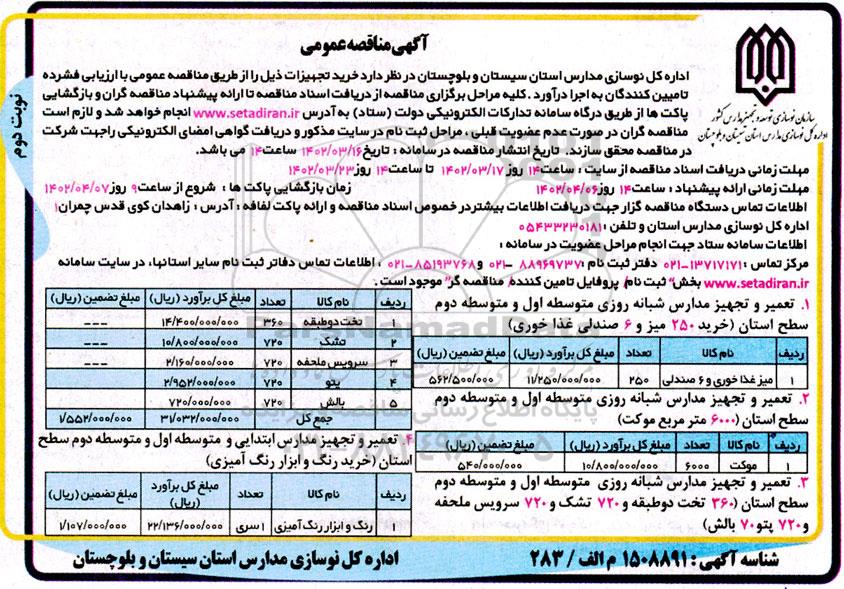 آگهی مناقصه عمومی
نوبت دوم
سازمان نوسازی توسعه و تجهیز مدارس کشور
اداره کل نوسازی مدارس استان سیستان و بلوچستان
اداره کل نوسازی مدارس استان سیستان و بلوچستان در نظر دارد خرید تجهیزات ذیل را از طریق مناقصه عمومی با ارزیابی فشرده
تامیین کنندگان به اجرا درآورد . کلیه مراحل برگزاری مناقصه از دریافت اسناد مناقصه تا ارائه پیشنهاد مناقصه گران و بازگشایی
پاکت ها از طریق درگاه سامانه تدارکات الکترونیکی دولت (ستاد) به آدرس www.setadiran.ir انجام خواهد شد و لازم است
مناقصه گران در صورت عدم عضویت قبلی ، مراحل ثبت نام در سایت مذکور و دریافت گواهی امضای الکترونیکی راجهت شرکت
در مناقصه محقق سازند. تاریخ انتشار مناقصه در سامانه : تاریخ ۱۴۰۲/۰۳/۱۶ ساعت ۱۴ می باشد.
مهلت زمانی دریافت اسناد مناقصه از سایت : ساعت ۱۴ روز ۱۴۰۲/۰۳/۱۷ تا ساعت ۱۴ روز ۱۴۰۲/۰۳/۲۳
مهلت زمانی ارائه پیشنهاد : ساعت ۱۴ روز ۱۴۰۲/۰۴/۰۶ زمان بازگشایی پاکت ها : شروع از ساعت ۹ روز ۱۴۰۲/۰۴/۰۷
اطلاعات تماس دستگاه مناقصه گزار جهت دریافت اطلاعات بیشتر در خصوص اسناد مناقصه و ارائه پاکت لفافه : آدرس : زاهدان کوی قدس چمران ۱
اداره کل نوسازی مدارس استان و تلفن : ۰۵۴۳۳۲۳۰۱۸۱
اطلاعات سامانه ستاد جهت انجام مراحل عضویت در سامانه :
مرکز تماس : ۱۳۷۱۷۱۷۱-۰۲۱ دفتر ثبت نام : ۸۸۹۶۹۷۳۷ -۰۲۱ و ۸۵۱۹۳۷۶۸-۰۲۱ ، اطلاعات تماس دفاتر ثبت نام سایر استانها، در سایت سامانه
www.setadiran.ir بخش" ثبت نام/ پروفایل تامین کننده/ مناقصه گر" موجود است .
۱. تعمیر و تجهیز مدارس شبانه روزی متوسطه اول و متوسطه دوم
سطح استان (خرید ۲۵۰ میز و ۶ صندلی غذا خوری)
ردیف نام کالا تعداد مبلغ کل برآورد (ریال) مبلغ تضمین (ریال)
۱ میز غذا خوری و ۶ صندلی ۲۵۰ ۱۱/۲۵۰/۰۰۰/۰۰۰ ۵۶۲/۵۰۰/۰۰۰
۲. تعمیر و تجهیز مدارس شبانه روزی متوسطه اول و متوسطه دوم
سطح استان (۶۰۰۰ متر مربع موکت)
ردیف نام کالا تعداد مبلغ کل برآورد (ریال) مبلغ تضمین (ریال)
۱ موکت ۶۰۰۰ ۱۰/۸۰۰/۰۰۰/۰۰۰ ۵۴۰/۰۰۰/۰۰۰
۳. تعمیر و تجهیز مدارس شبانه روزی متوسطه اول و متوسطه دوم
سطح استان (۳۶۰ تخت دوطبقه و ۷۲۰ تشک و ۷۲۰ سرویس ملحفه
و ۷۲۰ پتو ۷۰ بالش)
ردیف نام کالا تعداد مبلغ کل برآورد (ریال) مبلغ تضمین (ریال)
۱ تخت دوطبقه ۳۶۰ ۱۴/۴۰۰/۰۰۰/۰۰۰ ---
۲ تشک ۷۲۰ ۱۰/۸۰۰/۰۰۰/۰۰۰ ---
۳ سرویس ملحفه ۷۲۰ ۲/۱۶۰/۰۰۰/۰۰۰ ---
۴ پتو ۷۲۰ ۲/۹۵۲/۰۰۰/۰۰۰
۵ بالش ۷۲۰ ۷۲۰/۰۰۰/۰۰۰
جمع کل ۳۱/۰۳۲/۰۰۰/۰۰۰ ۱/۵۵۲/۰۰۰/۰۰۰
۴. تعمیر و تجهیز مدارس ابتدایی و متوسطه اول و متوسطه دوم سطح
استان (خرید رنگ و ابزار رنگ آمیزی)
ردیف نام کالا تعداد مبلغ کل برآورد (ریال) مبلغ تضمین (ریال)
۱ رنگ و ابزار رنگ آمیزی ۱ سری ۲۲/۱۳۶/۰۰۰/۰۰۰ ۱/۱۰۷/۰۰۰/۰۰۰
شناسه آگهی : ۱۵۰۸۸۹۱ م الف / ۲۸۳
اداره کل نوسازی مدارس استان سیستان و بلوچستان